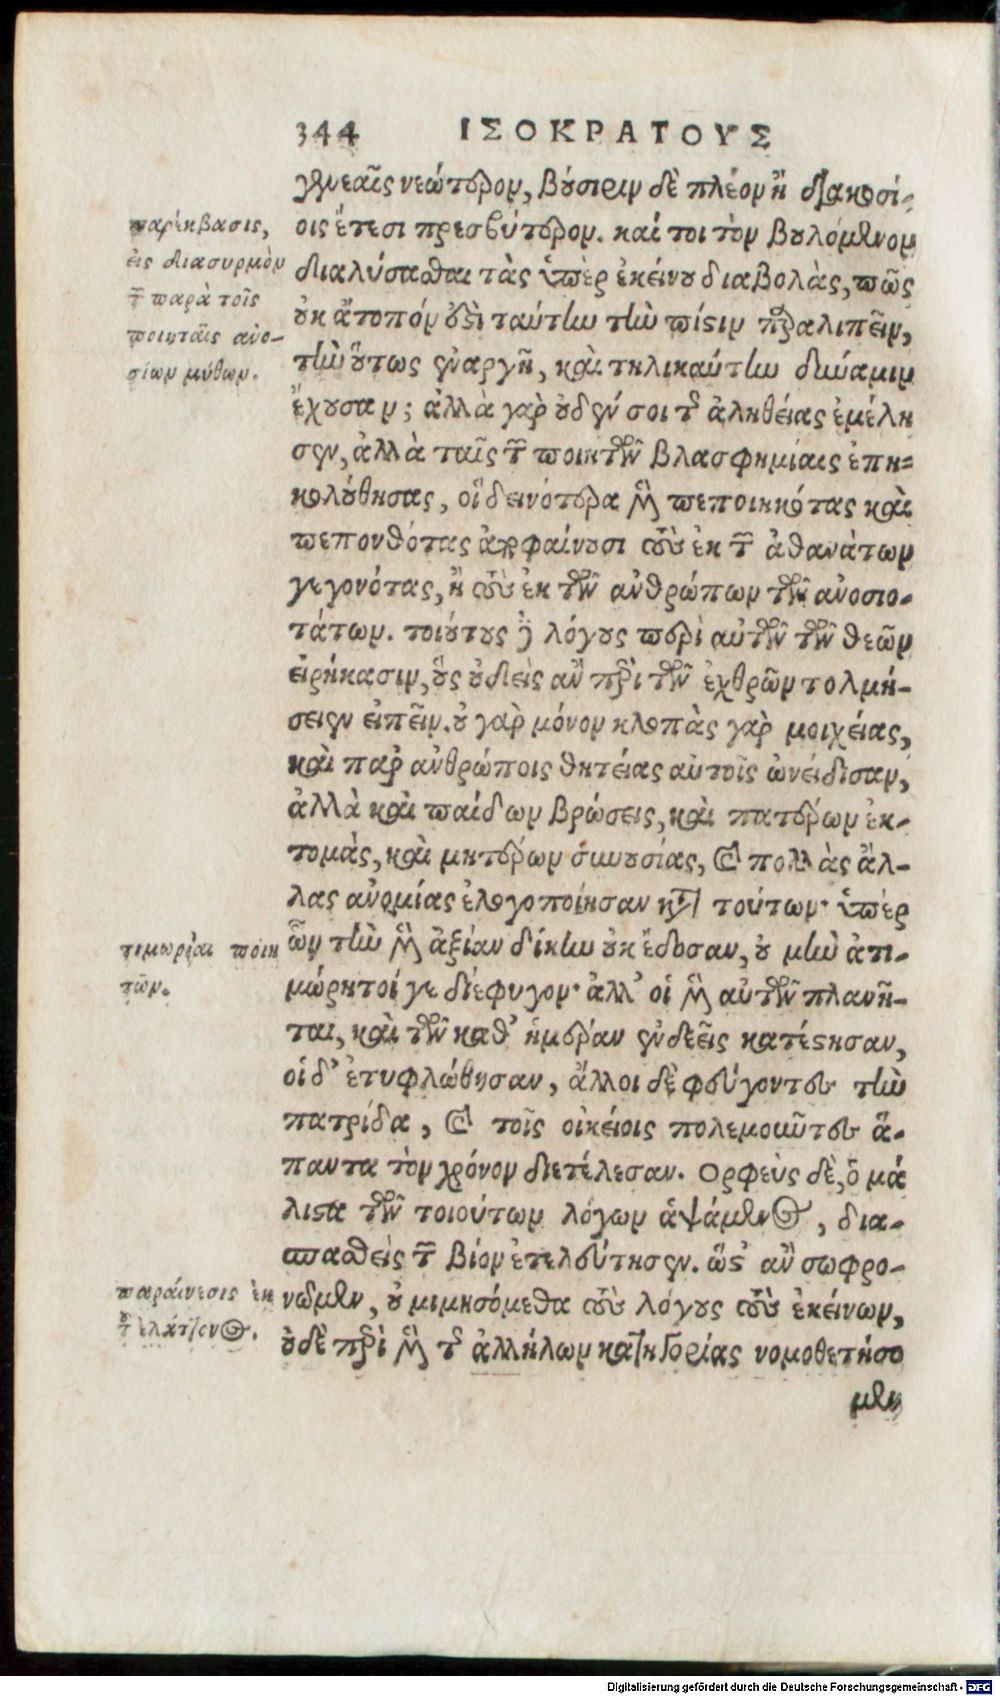 344 ΙΣΟΚΡΑΤΟΥΣ
γενεαῖς νεώτερον, βούσιριν δὲ πλέον ἢ διακοσί-
οις ἔτεσι πρεσβύτερον. καί τοι τὸν βουλόμενον
διαλύσασθαι τὰς ὑπὲρ ἐκείνου διαβολὰς, πῶς
οὐκ ἄτοπόν ἐστι ταύτην τὴν πίστιν παραλιπεῖν,
τὴν οὕτως ἐναργῆ, καὶ τηλικαύτην δύναμιν
ἔχουσαν; ἀλλὰ γὰρ οὐδέν σοι τῆς ἀληθείας ἐμέλη
σεν, ἀλλὰ ταῖς τῶν ποιητῶν βλασφημίαις ἐπη-
κολούθησας, οἳ δεινότερα μὲν πεποιηκότας καὶ
πεπονθότας ἀποφαίνουσι τοὺς ἐκ τῶν ἀθανάτων
γεγονότας, ἢ τοὺς ἐκ τῶν ἀνθρώπων τῶν ἀνοσιο-
τάτων. τοιούτους δὲ λόγους περὶ αὐτῶν τῶν θεῶν
εἰρήκασιν, οὓς οὐδεὶς ἂν περὶ τῶν ἐχθρῶν τολμή-
σειεν εἰπεῖν. οὐ γὰρ μόνον κλοπὰς γὰρ μοιχείας,
καὶ παρ' ἀνθρώποις θητείας αὐτοῖς ὠνείδισαν,
ἀλλὰ καὶ παίδων βρώσεις, καὶ πατέρων ἐκ-
τομὰς, καὶ μητέρων συνουσίας, καὶ πολλὰς ἄλ-
λας ἀνομίας ἐλογοποίησαν κατὰ τούτων· ὑπὲρ
ὧν τὴν μὲν ἀξίαν δίκην οὐκ ἔδοσαν, οὐ μὴν ἀτι-
μώρητοί γε διέφυγον· ἀλλ' οἱ μὲν αὐτῶν πλανῆ-
ται, καὶ τῶν καθ' ἡμέραν ἐνδεεῖς κατέστησαν,
οἱ δ' ἐτυφλώθησαν, ἄλλοι δὲ φεύγοντες τὴν
πατρίδα, καὶ τοῖς οἰκείοις πολεμοῦντες ἅ-
παντα τὸν χρόνον διετέλεσαν. Ορφεὺς δὲ, ὁ μά
λιστα τῶν τοιούτων λόγων ἁψάμενος, δια-
σπασθεὶς τὸν βίον ἐτελεύτησεν. ὥστ' ἂν σωφρο-
νῶμεν, οὐ μιμησόμεθα τοὺς λόγους τοὺς ἐκείνων,
οὐδὲ περὶ μὲν τῆς ἀλλήλων κατηγορίας νομοθετήσο
μεν
παρέκβασις,
εἰς διασυρμὸν
τῶν παρὰ τοῖς
ποιηταῖς ἀνο-
σίων μύθων.
τιμωρίαι ποιη
τῶν.
παραίνεσις ἐκ
τοῦ ἐλάττονος.